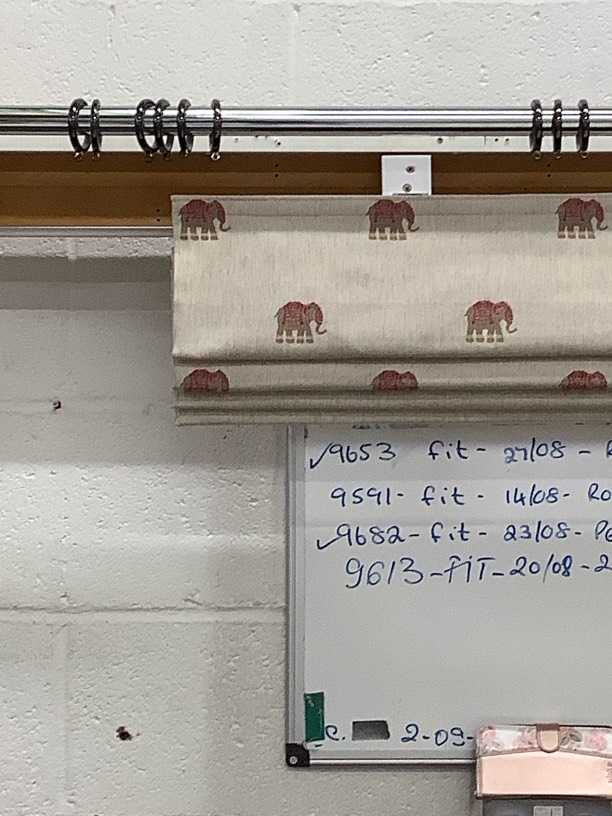 ✓9653 fit - 27/08 - R
9591 - fit - 14/08 - Ro
✓9682 - fit - 23/08 - Pe
9613 - FIT - 20/08 - 2
c. 2-09-